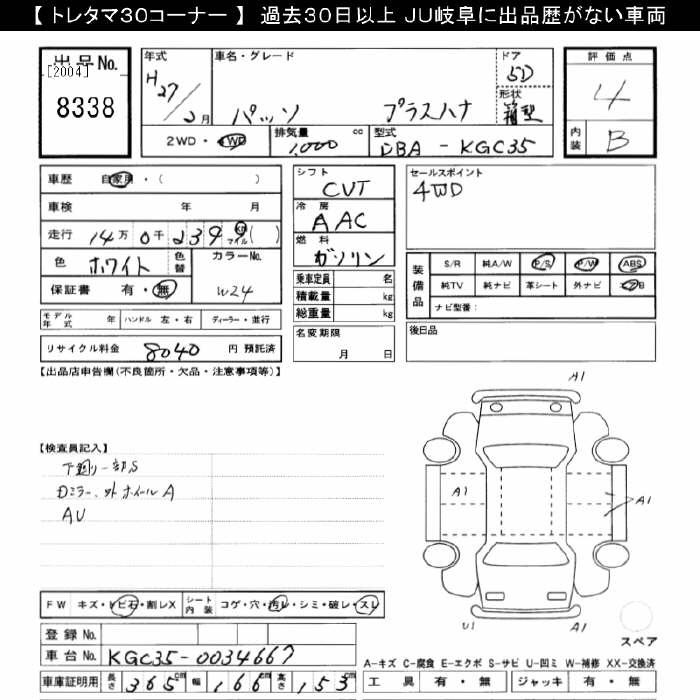 【 トレタマ30コーナー 】 過去30日以上 JU岐阜に出品歴がない車両
出品No.
[2004]
8338
年式
H27/2月
車名・グレード
パッソ プラスハナ
ドア
5D
形状
箱型
評価点
4
内装
B
2WD・4WD
排気量 cc
1,000
型式
DBA-KGC35
車歴 自家用・( )
車検 年 月
走行 14万0千239 km マイル ( )
色 ホワイト
色替
カラーNo.
W24
保証書 有・無
シフト
CVT
冷房
AAC
燃料
ガソリン
乗車定員 名
積載量 kg
総重量 kg
名変期限
月 日
セールスポイント
4WD
装備品
S/R 純A/W P/S P/W ABS
純TV 純ナビ 革シート 外ナビ エアB
ナビ型番:
後日品
モデル年式 年 ハンドル 左・右 ディーラー・並行
リサイクル料金 8040 円 預託済
【出品店申告欄(不良箇所・欠品・注意事項等)】
【検査員記入】
下廻り一部S
Dミラー、外ホイールA
AU
A1
A1
A1
U1
A1
FW キズ・トビ石・割レX
シート内装 コゲ・穴・汚レ・シミ・破レ・スレ
登録No.
車台No. KGC35-0034667
車庫証明用 長さ 365cm 幅 166cm 高さ 153cm
スペア
A-キズ C-腐食 E-エクボ S-サビ U-凹ミ W-補修 XX-交換済
工具 有・無 ジャッキ 有・無